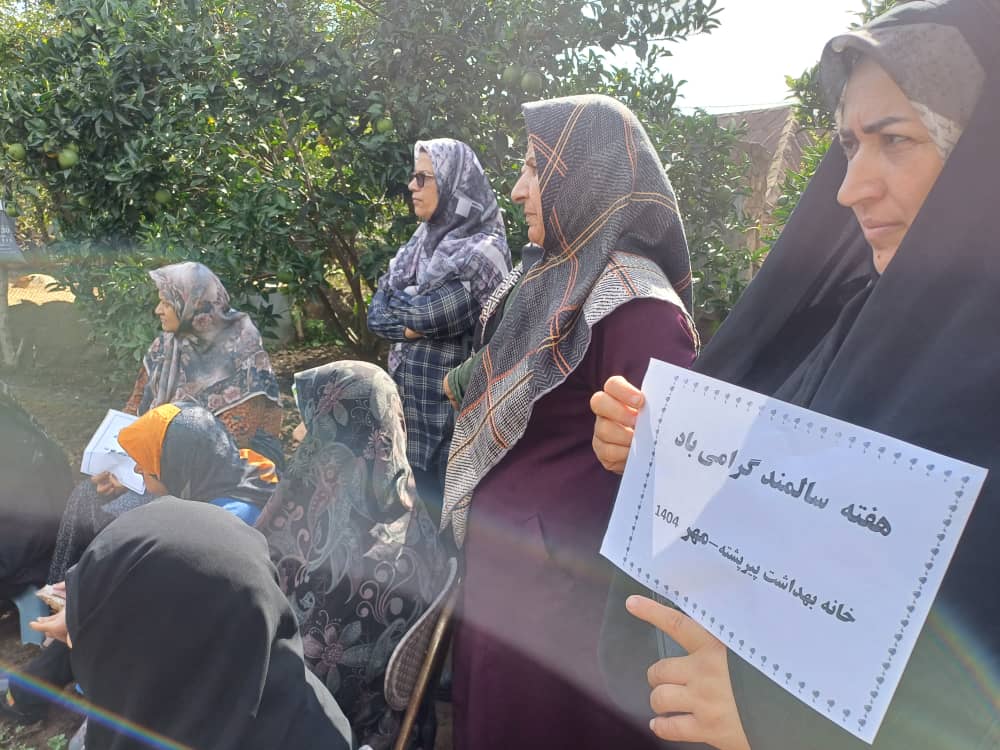 هفته سالمند گرامی باد
خانه بهداشت پیرپشته-مهر 1404